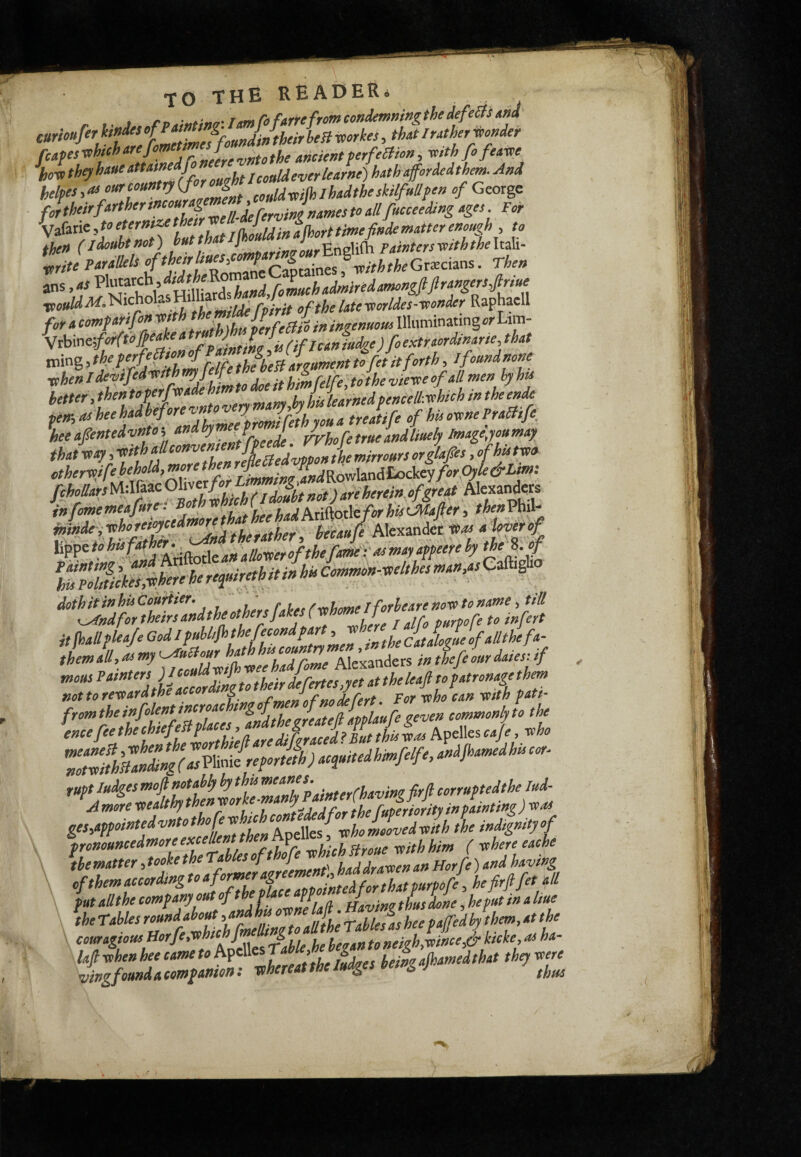 TO THE READER.
curiouſer kindes of Painting: I am ſo farre from condemning the defects and
ſcapes which are ſometimes found in their beſt workes, that I rather wonder
how they haue attained ſo neere vnto the ancient perfection, with ſo feawe
helpes, as our country (for ought I could ever learne) hath afforded them. And
for their farther incouragement, could wiſh I had the skilfull pen of George
Vaſarie, to eternize their well-deſerving names to all ſucceeding ages. For
then (I doubt not) but that I ſhould in a ſhort time finde matter enough, to
write Parallels of their liues, comparing our Engliſh Painters with the Itali-
ans, as Plutarch did the Romane Captaines, with the Græcians. Then
would M. Nicholas Hilliards hand, ſo much admired amongſt ſtrangers, ſtriue
for a compariſon with the milde ſpirit of the late worldes-wonder Raphaell
Vrbine; for (to ſpeake a truth) his perfectiō in ingenuous Illuminating or Lim-
ming, the perfection of Painting, is (if I can iudge) ſo extraordinarie, that
when I deviſed with my ſelfe the beſt argument to ſet it forth, I found none
better, then to perſwade him to doe it himſelfe, to the viewe of all men by his
pen; as hee had before vnto very many, by his learned pencell: which in the ende
hee aſſented vnto; and by mee promiſeth you a treatiſe of his owne Practiſe
that way, with all convenient ſpeede. VVhoſe true and liuely Image, you may
otherwiſe behold, more then reflected vppon the mirrours or glaſſes, of his two
ſchollars M: Iſaac Oliver for Limming, and Rowland Lockey for Oyle & Lim:
in ſome meaſure: Both which (I doubt not) are herein of great Alexanders
minde, who reioyced more that hee had Ariſtotle for his Maſter, then Phil-
lippe to his father. And the rather, becauſe Alexander was a lover of
Painting, and Ariſtotle an allower of the ſame: as may appeere by the 8. of
his Politickes, where he requireth it in his Common-welthes man, as Caſtiglio
doth it in his Courtier.
And for theirs and the others ſakes (whome I forbeare now to name, till
it ſhall pleaſe God I publiſh the ſecond part, where I alſo purpoſe to inſert
them all, as my Auctour hath his country men, in the Catalogue of all the fa-
mous Painters) I could wiſh wee had ſome Alexanders in theſe our daies: if
not to reward the according to their deſertes, yet at the leaſt to patronage them
from the inſolent incroaching of men of no deſert. For who can with pati-
ence ſee the chiefeſt places, and the greateſt applauſe geven commonly to the
meaneſt, when the worthieſt are diſgraced? But this was Apelles caſe, who
notwithſtanding (as Plinie reporteth) acquited himſelfe, and ſhamed his cor-
rupt Iudges moſt notably by this meanes.
A more wealthy then worke-manly Painter (having firſt corrupted the Iud-
ges, appointed vnto thoſe which contēded for the ſuperiority in painting) was
pronounced more excellent then Apelles, who mooved with the indignity of
the matter, tooke the Tables of thoſe which ſtroue with him (where eache
of them according to a former agreement, had drawen an Horſe) and having
put all the company out of the place appointed for that purpoſe, he firſt ſet all
the Tables round about, and his owne laſt. Having thus done, he put in a liue
couragious Horſe, which ſmelling to all the Tables as hee paſſed by them, at the
laſt when hee came to Apelles Table, he began to neigh, wince, & kicke, as ha-
ving found a companion: whereat the Iudges being aſhamed that they were
thus